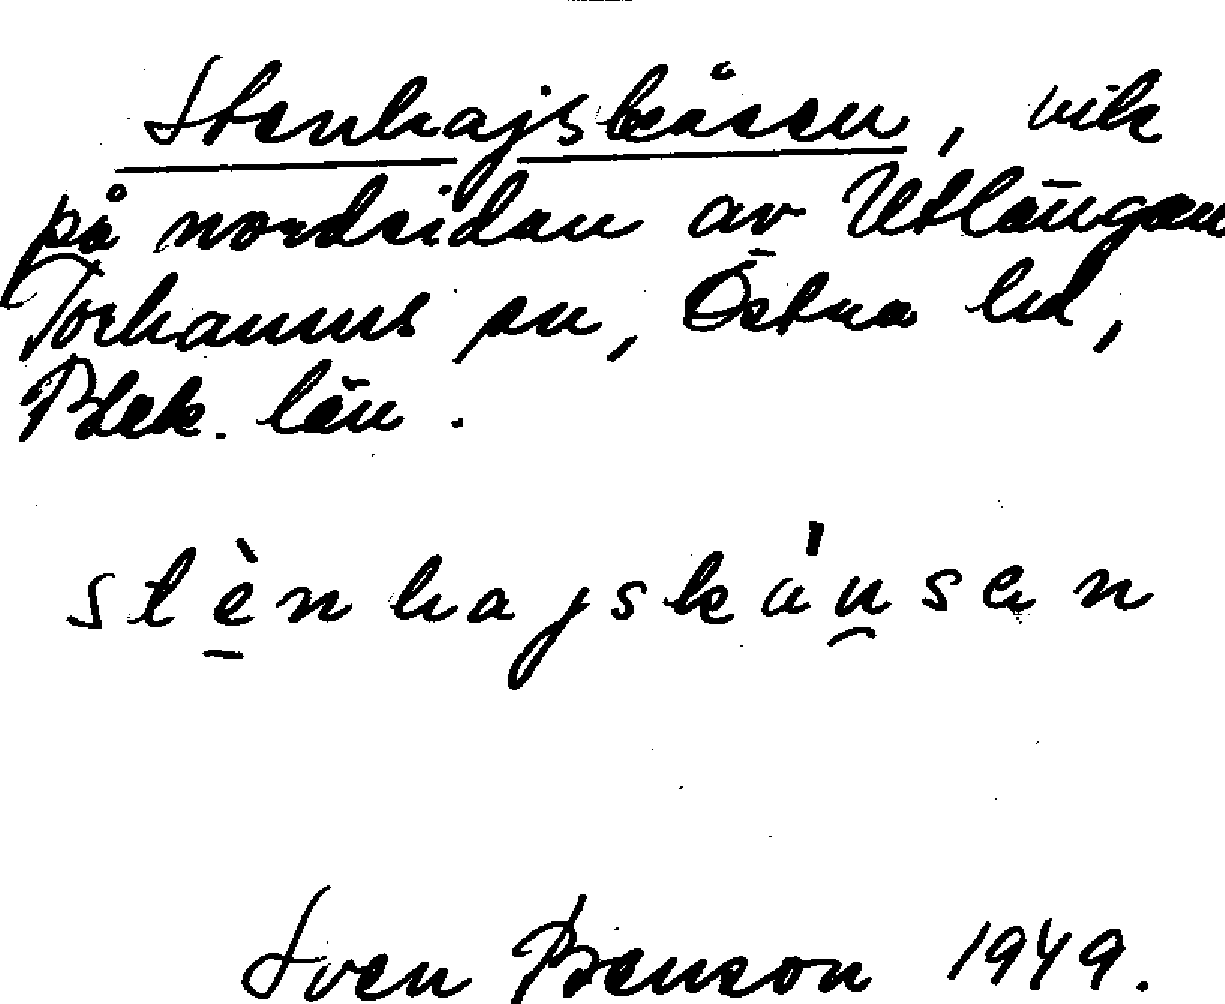 Stenhajskåsen, vik
på nordsidan av Utlängan
Torhamns sn, Östra hd,
Blek. län.
stènhajskáu̯sen
Sven Benson 1949.